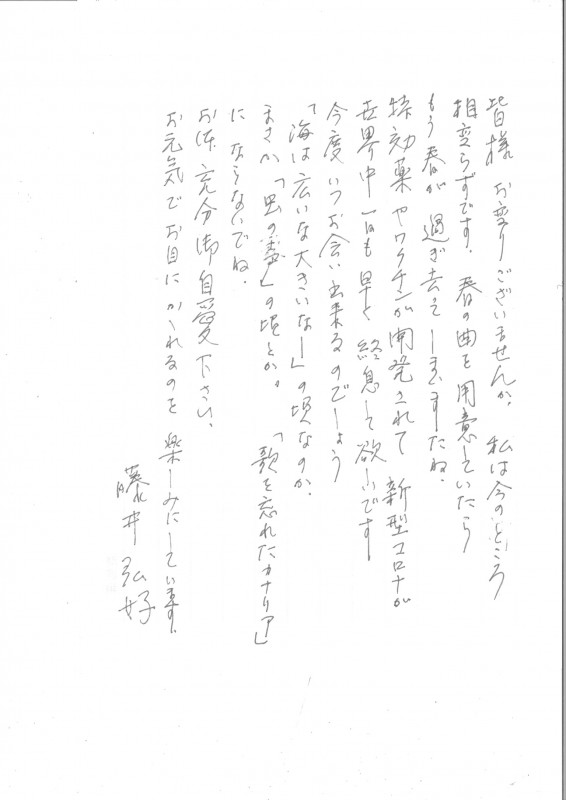 皆様 お変りございませんか。 私は今のところ
相変らずです。 春の曲を用意していたら
もう春が過ぎ去ってしまいましたね。
特効薬やワクチンが開発されて 新型コロナが
世界中一日も早く 終息して欲しいです
今度いつお会い出来るのでしょう
「海は広いな大きいなー」の頃なのか。
まさか「虫の声」の頃とか。 「歌を忘れたカナリア」
に ならないでね。
お体 充分御自愛下さい。
お元気で お目にかゝれるのを 楽しみにしています。
藤井弘好